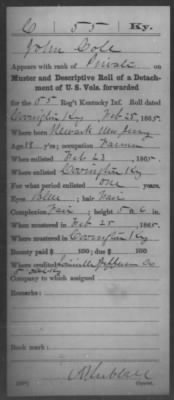 C 55 Ky.
John Cole
Appears with rank of Private on
Muster and Descriptive Roll of a Detach-
ment of U. S. Vols. forwarded
for the 55 Reg't Kentucky Inf. Roll dated
Covington Ky Feb 25, 1865.
Where born Newark New Jersey
Age 18 y'rs; occupation Farmer
When enlisted Feb 23, 1865.
Where enlisted Covington Ky
For what period enlisted one years.
Eyes Blue; hair Fair
Complexion Fair; height 5 ft. 6 in.
When mustered in Feb 25, 1865.
Where mustered in Covington Ky
Bounty paid $ 100; due $ 100
Where credited Louisville Jefferson Co
Company to which assigned
Remarks:
Book mark:
Copyist.